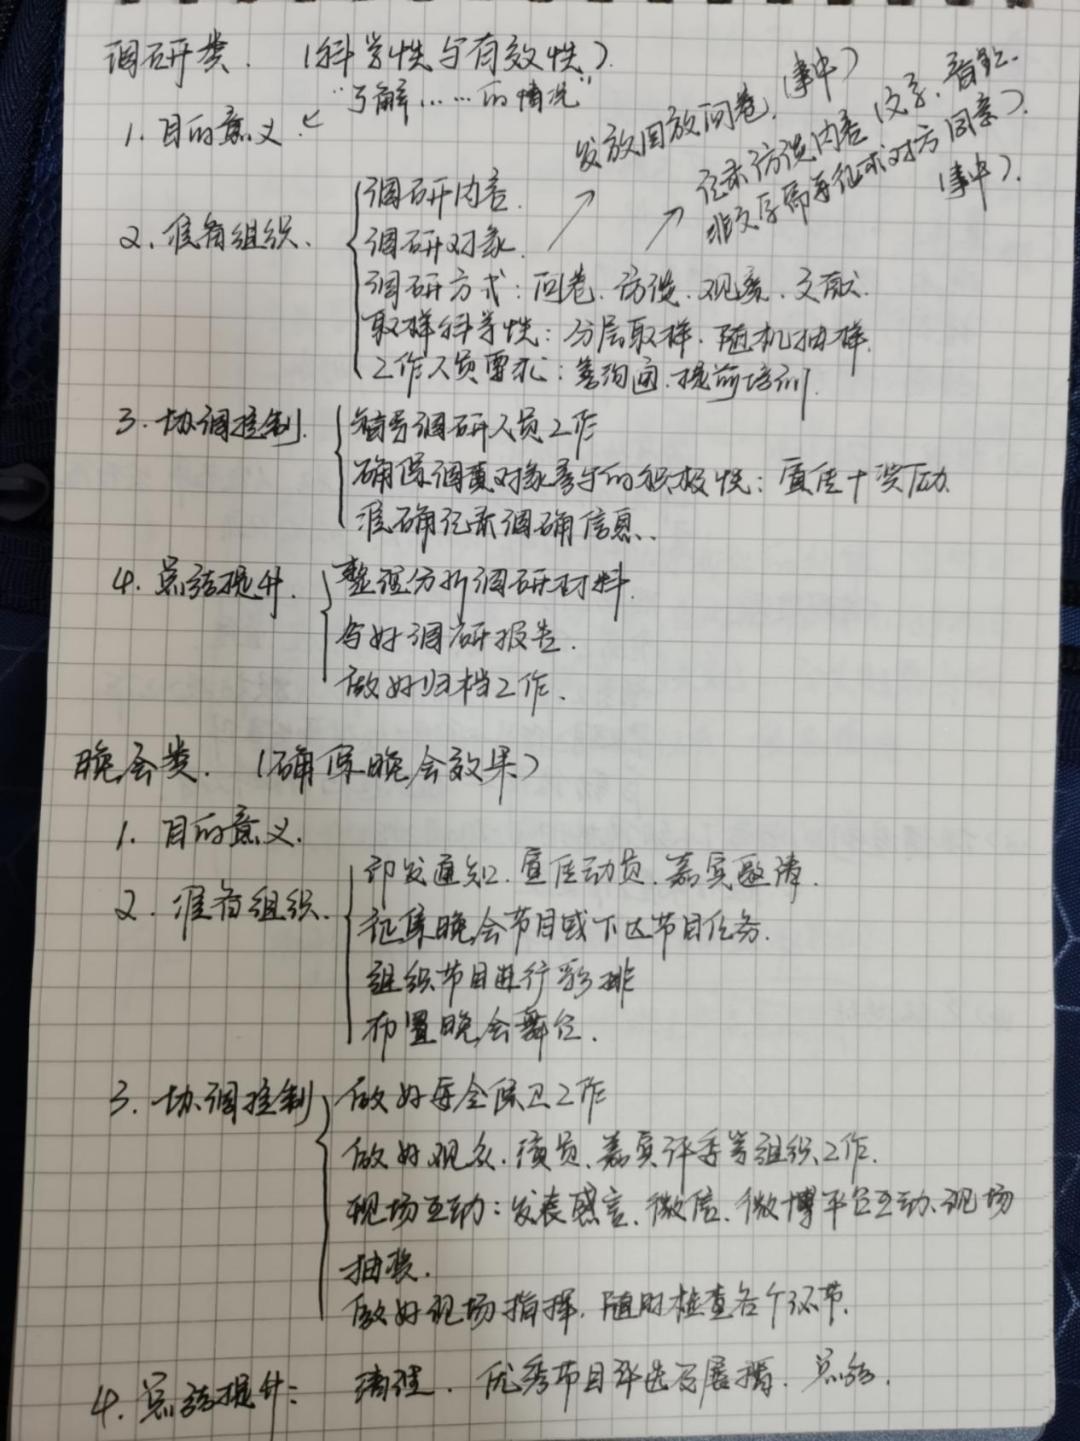 调研类.（科学性与有效性）
1. 目的意义. ← “了解……的情况”
发放回放问卷.（事中）
记录访谈内容（文字、音频.
非文字需要征求对方同意）.
（事中）.
2. 准备组织.
调研内容.
调研对象.
调研方式：问卷、访谈、观察、文献.
取样科学性：分层取样、随机抽样.
工作人员要求：善沟通、提前培训.
3. 协调控制.
指导调研人员工作
确保调查对象参与的积极性：宣传+奖励.
准确记录调确信息.
4. 总结提升.
整理分析调研材料.
写好调研报告.
做好归档工作.
晚会类.（确保晚会效果）
1. 目的意义.
2. 准备组织.
印发通知、宣传动员、嘉宾邀请.
征集晚会节目或下达节目任务.
组织节目进行彩排
布置晚会舞台.
3. 协调控制
做好安全保卫工作
做好观众、演员、嘉宾评委等组织工作.
现场互动：发表感言、微信、微博平台互动、现场
抽奖.
做好现场指挥，随时检查各个环节.
4. 总结提升：清理、优秀节目评选与展播、总结.